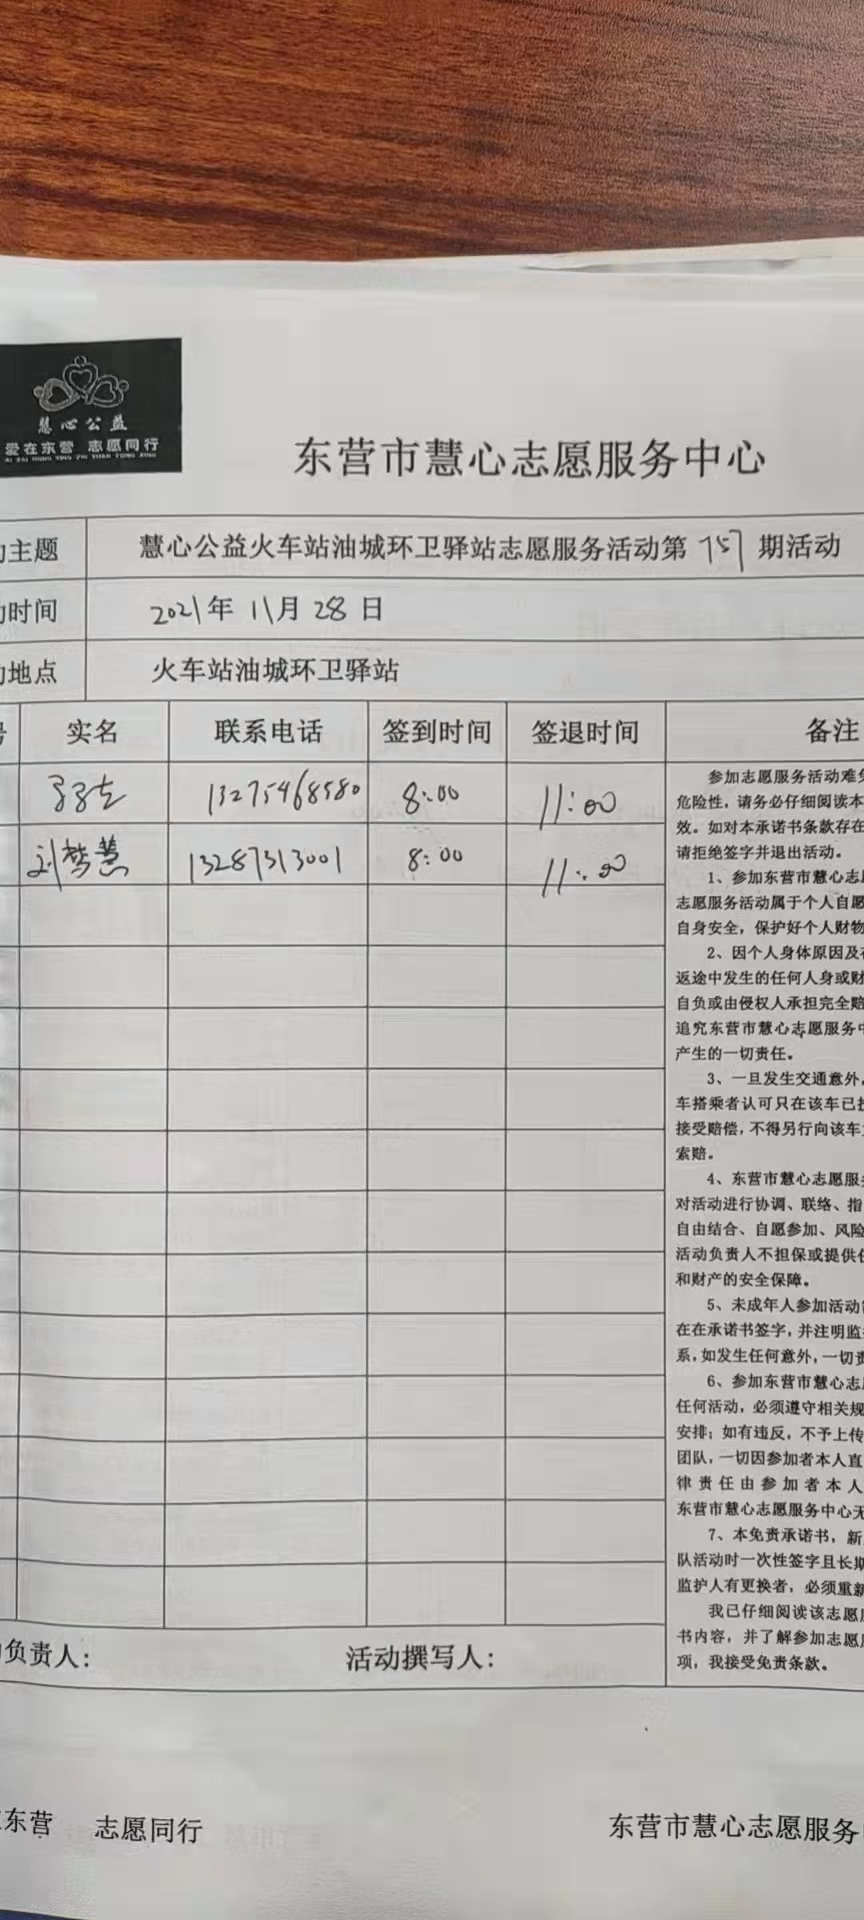 慧心公益
爱在东营 志愿同行
AI ZAI DONG YING ZHI YUAN TONG XING
东营市慧心志愿服务中心
主题 慧心公益火车站油城环卫驿站志愿服务活动第757期活动
时间 2021年11月28日
地点 火车站油城环卫驿站
号 实名 联系电话 签到时间 签退时间 备注
13275468580 8:00 11:00
刘梦慧 13287313001 8:00 11:00
参加志愿服务活动难免
危险性，请务必仔细阅读本
效。如对本承诺书条款存在
请拒绝签字并退出活动。
1、参加东营市慧心志愿
志愿服务活动属于个人自愿
自身安全，保护好个人财物
2、因个人身体原因及在
返途中发生的任何人身或财
自负或由侵权人承担完全赔
追究东营市慧心志愿服务中
产生的一切责任。
3、一旦发生交通意外，
车搭乘者认可只在该车已投
接受赔偿，不得另行向该车主
索赔。
4、东营市慧心志愿服务
对活动进行协调、联络、指
自由结合、自愿参加、风险
活动负责人不担保或提供任
和财产的安全保障。
5、未成年人参加活动
在在承诺书签字，并注明监
系，如发生任何意外，一切责
6、参加东营市慧心志愿
任何活动，必须遵守相关规
安排；如有违反，不予上传
团队，一切因参加者本人直
律责任由参加者本人
东营市慧心志愿服务中心无
7、本免责承诺书，新
队活动时一次性签字且长期
监护人有更换者，必须重新
我已仔细阅读该志愿服
书内容，并了解参加志愿服
项，我接受免责条款。
负责人： 活动撰写人：
东营 志愿同行 东营市慧心志愿服务中